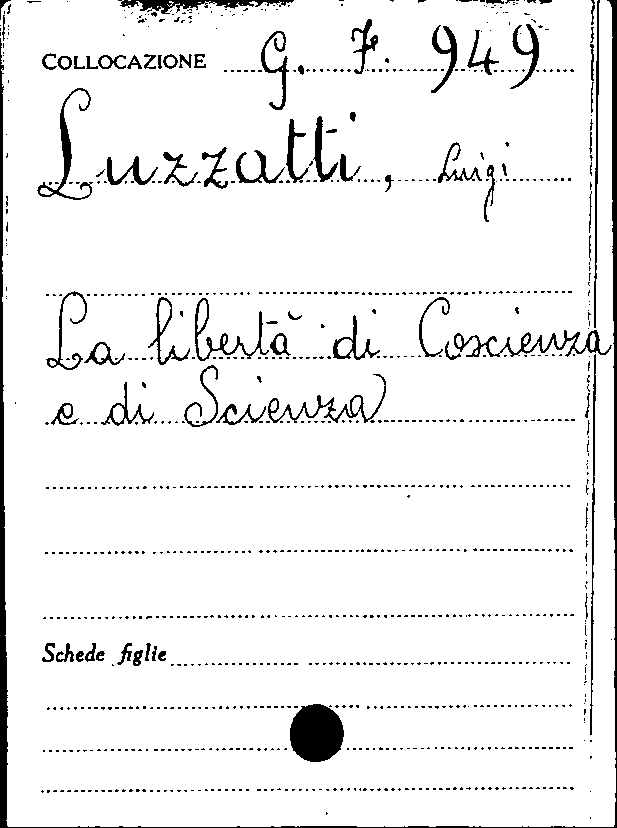 COLLOCAZIONE G. F. 949
Luzzatti, Luigi
La libertà di Coscienza
e di Scienza
Schede figlie